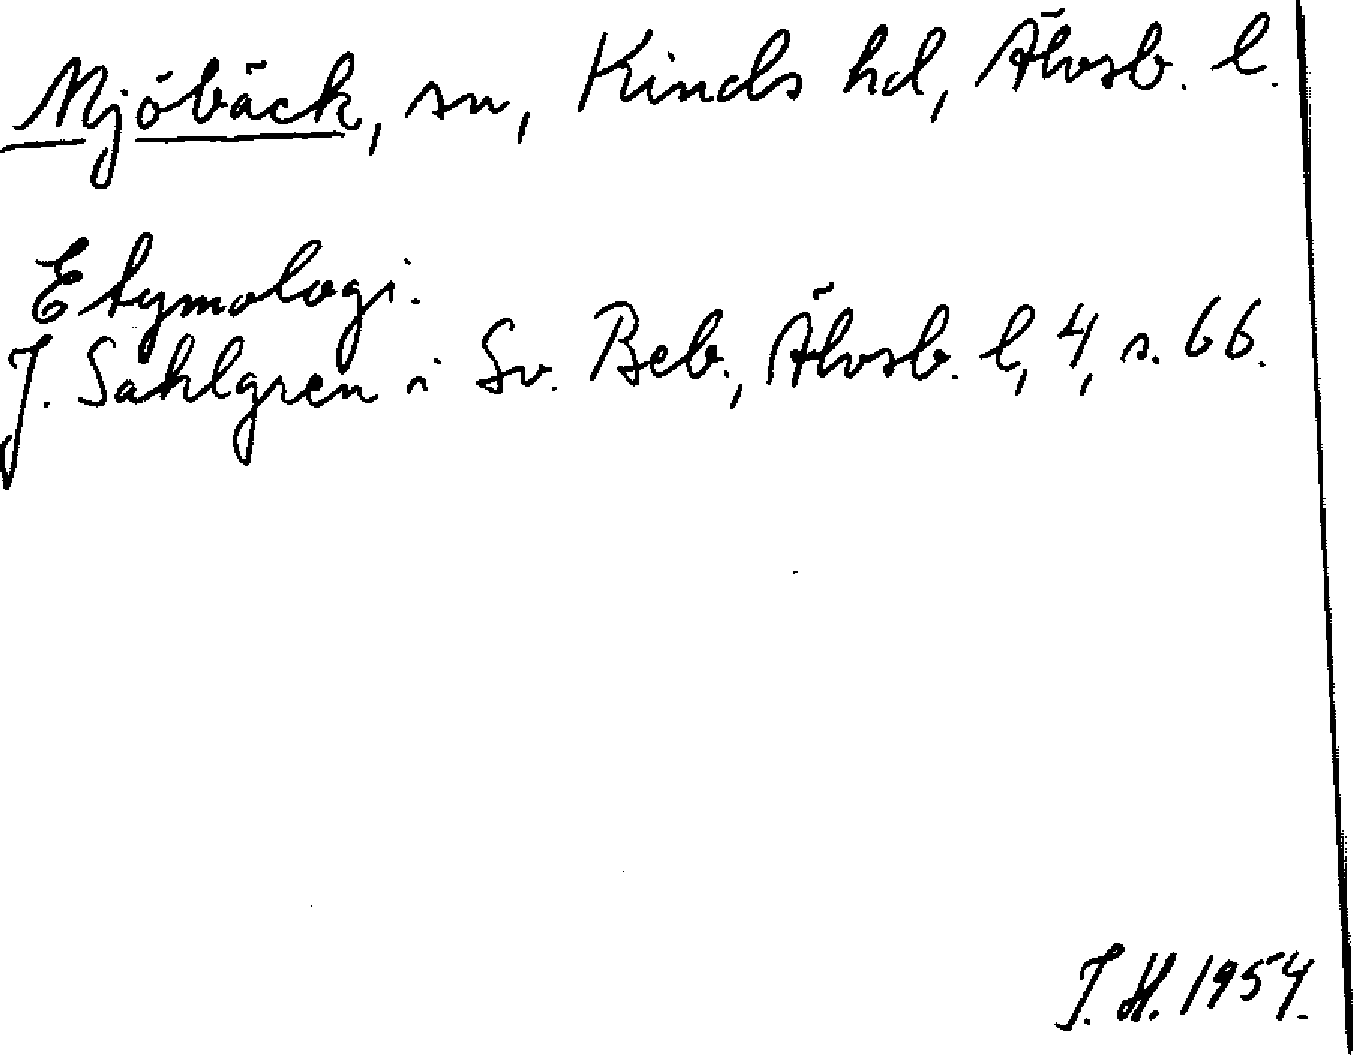 Mjöbäck, sn, Kinds hd, Älvsb. l.
Etymologi.
J. Sahlgren i Sv. Beb., Älvsb. l, 4, s. 66.
J. H. 1954.